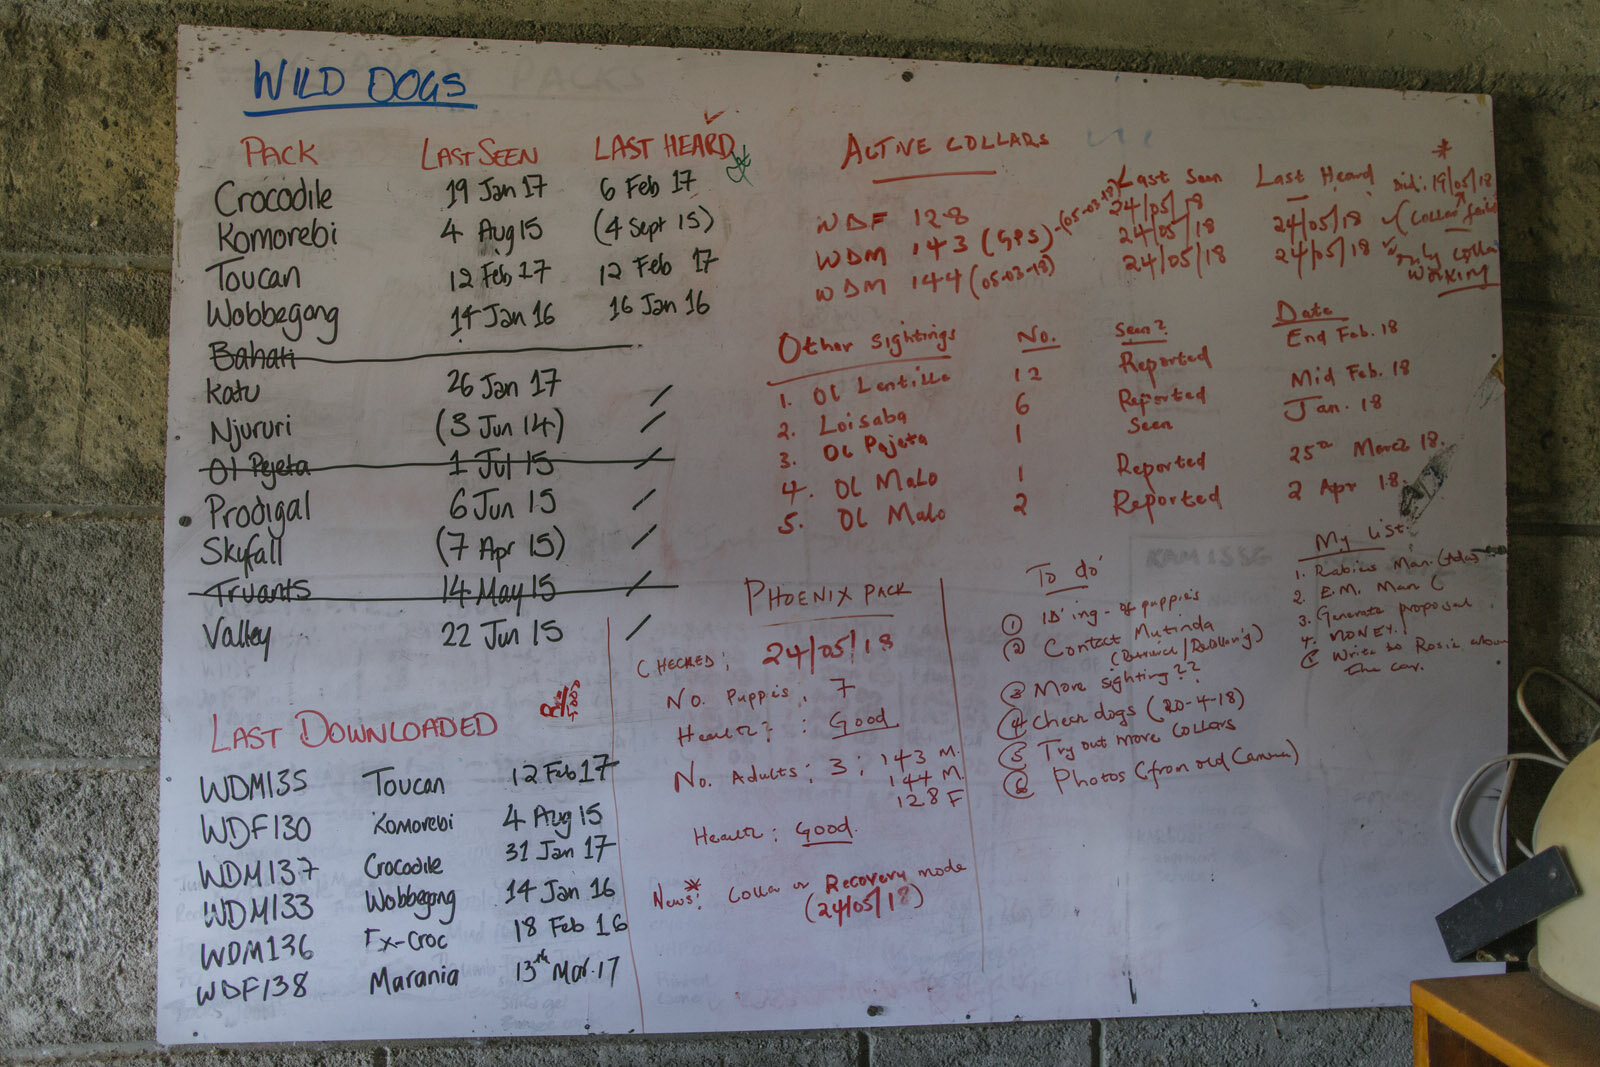 WILD DOGS
PACK LAST SEEN LAST HEARD
Crocodile 19 Jan 17 6 Feb 17
Komorebi 4 Aug 15 (4 Sept 15)
Toucan 12 Feb 17 12 Feb 17
Wobbegong 14 Jan 16 16 Jan 16
Bahati
Katu 26 Jan 17 /
Njururi (3 Jun 14) /
Ol Pejeta 1 Jul 15 /
Prodigal 6 Jun 15 /
Skyfall (7 Apr 15) /
Truants 14 May 15 /
Valley 22 Jun 15 /
LAST DOWNLOADED
WDM135 Toucan 12 Feb 17
WDF130 Komorebi 4 Aug 15
WDM137 Crocodile 31 Jan 17
WDM133 Wobbegong 14 Jan 16
WDM136 Ex-Croc 18 Feb 16
WDF138 Marania 13th Mar. 17
ACTIVE COLLARS
Last Seen Last Heard *
WDF 128 24/05/18 19/05/18
WDM 143 (GPS) - (05-03-18) 24/05/18 24/05/18 (Collar failed
WDM 144 (05-03-18) 24/05/18 24/05/18 only collar
working
Other sightings No. Seen? Date
1. Ol Lentille 12 Reported End Feb. 18
2. Loisaba 6 Reported Mid Feb. 18
3. Ol Pajeta 1 Seen Jan. 18
4. Ol Malo 1 Reported 25th March 18.
5. Ol Malo 2 Reported 2 Apr 18.
PHOENIX PACK
CHECKED: 24/05/18
No. Puppies: 7
Health? : Good
No. Adults: 3: 143 M.
144 M.
128 F
Health: Good.
News*: Collar on Recovery mode
(24/05/18)
To do
1 ID'ing - of puppies
2 Contact Mutinda
3 More sighting??
4 Check dogs (20-4-18)
5 Try out more collars
6 Photos (from old Camera)
My List:
1. Rabies Man.
2. E.M. Man (
3. Generate proposal.
4. MONEY!
5 Write to Rosie about
the car.